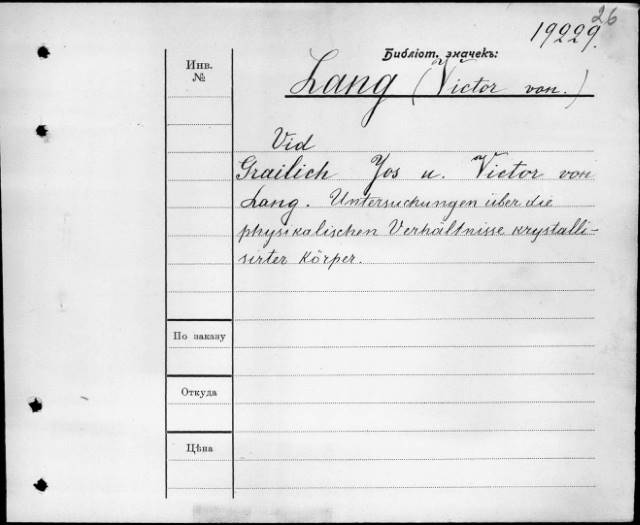 26
19229.
Библіот. значекъ:
Инв.
№
Lang (Victor von.)
Vid
Grailich Jos u. Victor von
Lang. Untersuchungen über die
physikalischen Verhältnisse krystalli-
sirter Körper.
По заказу
Откуда
Цѣна